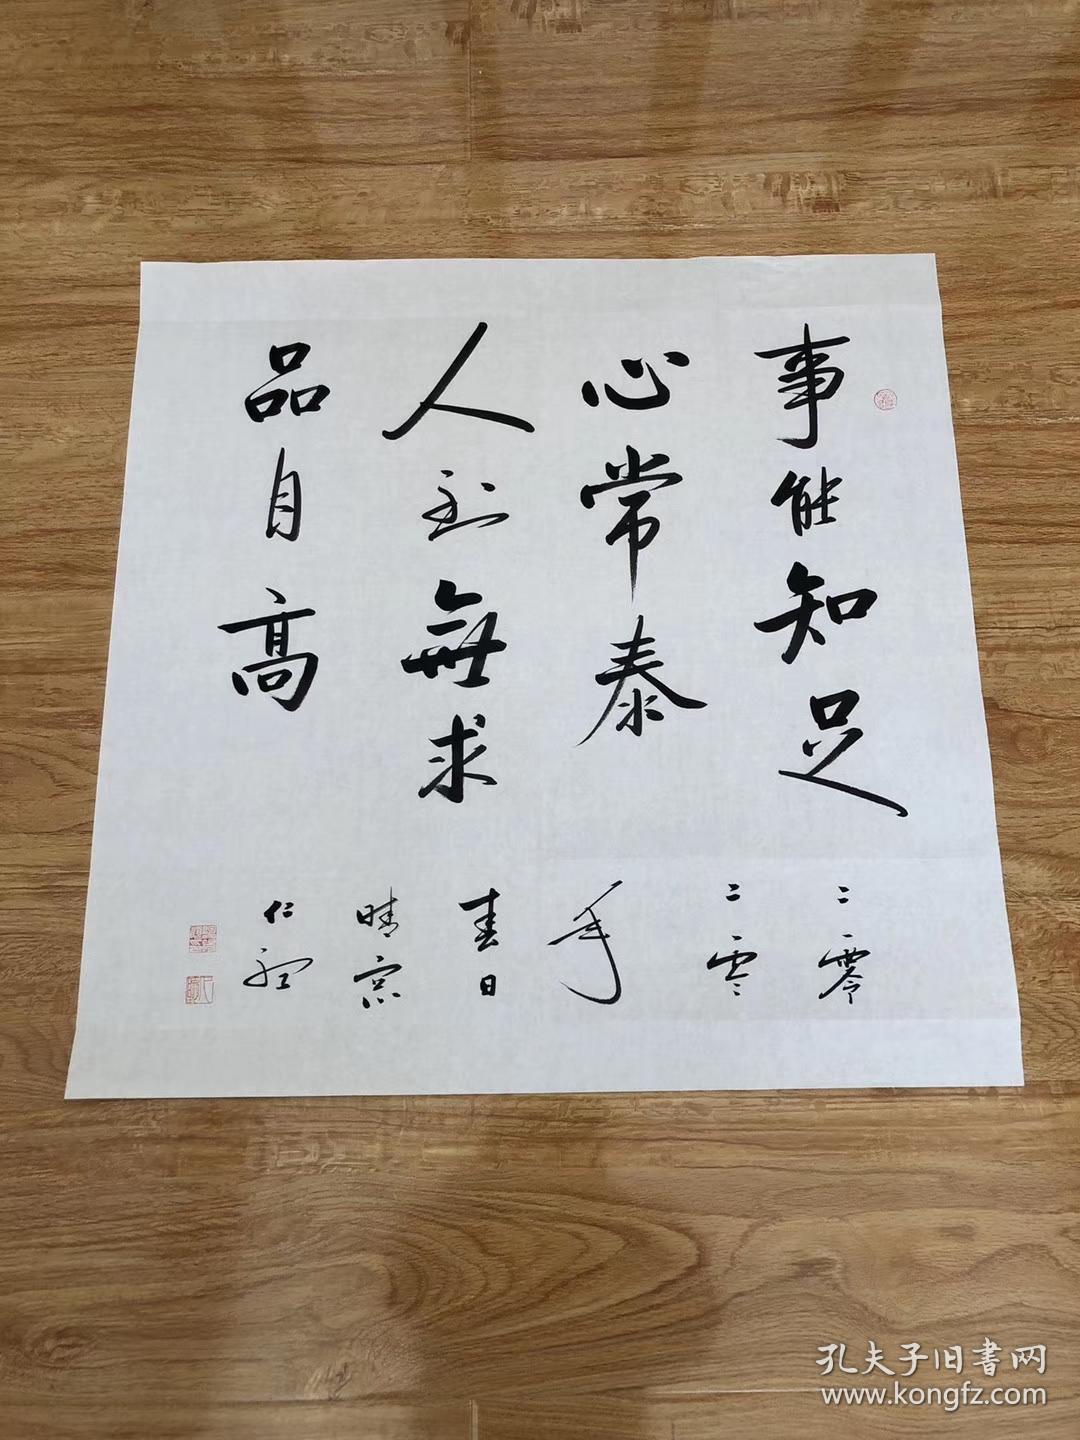 事能知足
心常泰
人到無求
品自高
二零
二零
年
春日
晴窗
仁
孔夫子旧書网
www.kongfz.com